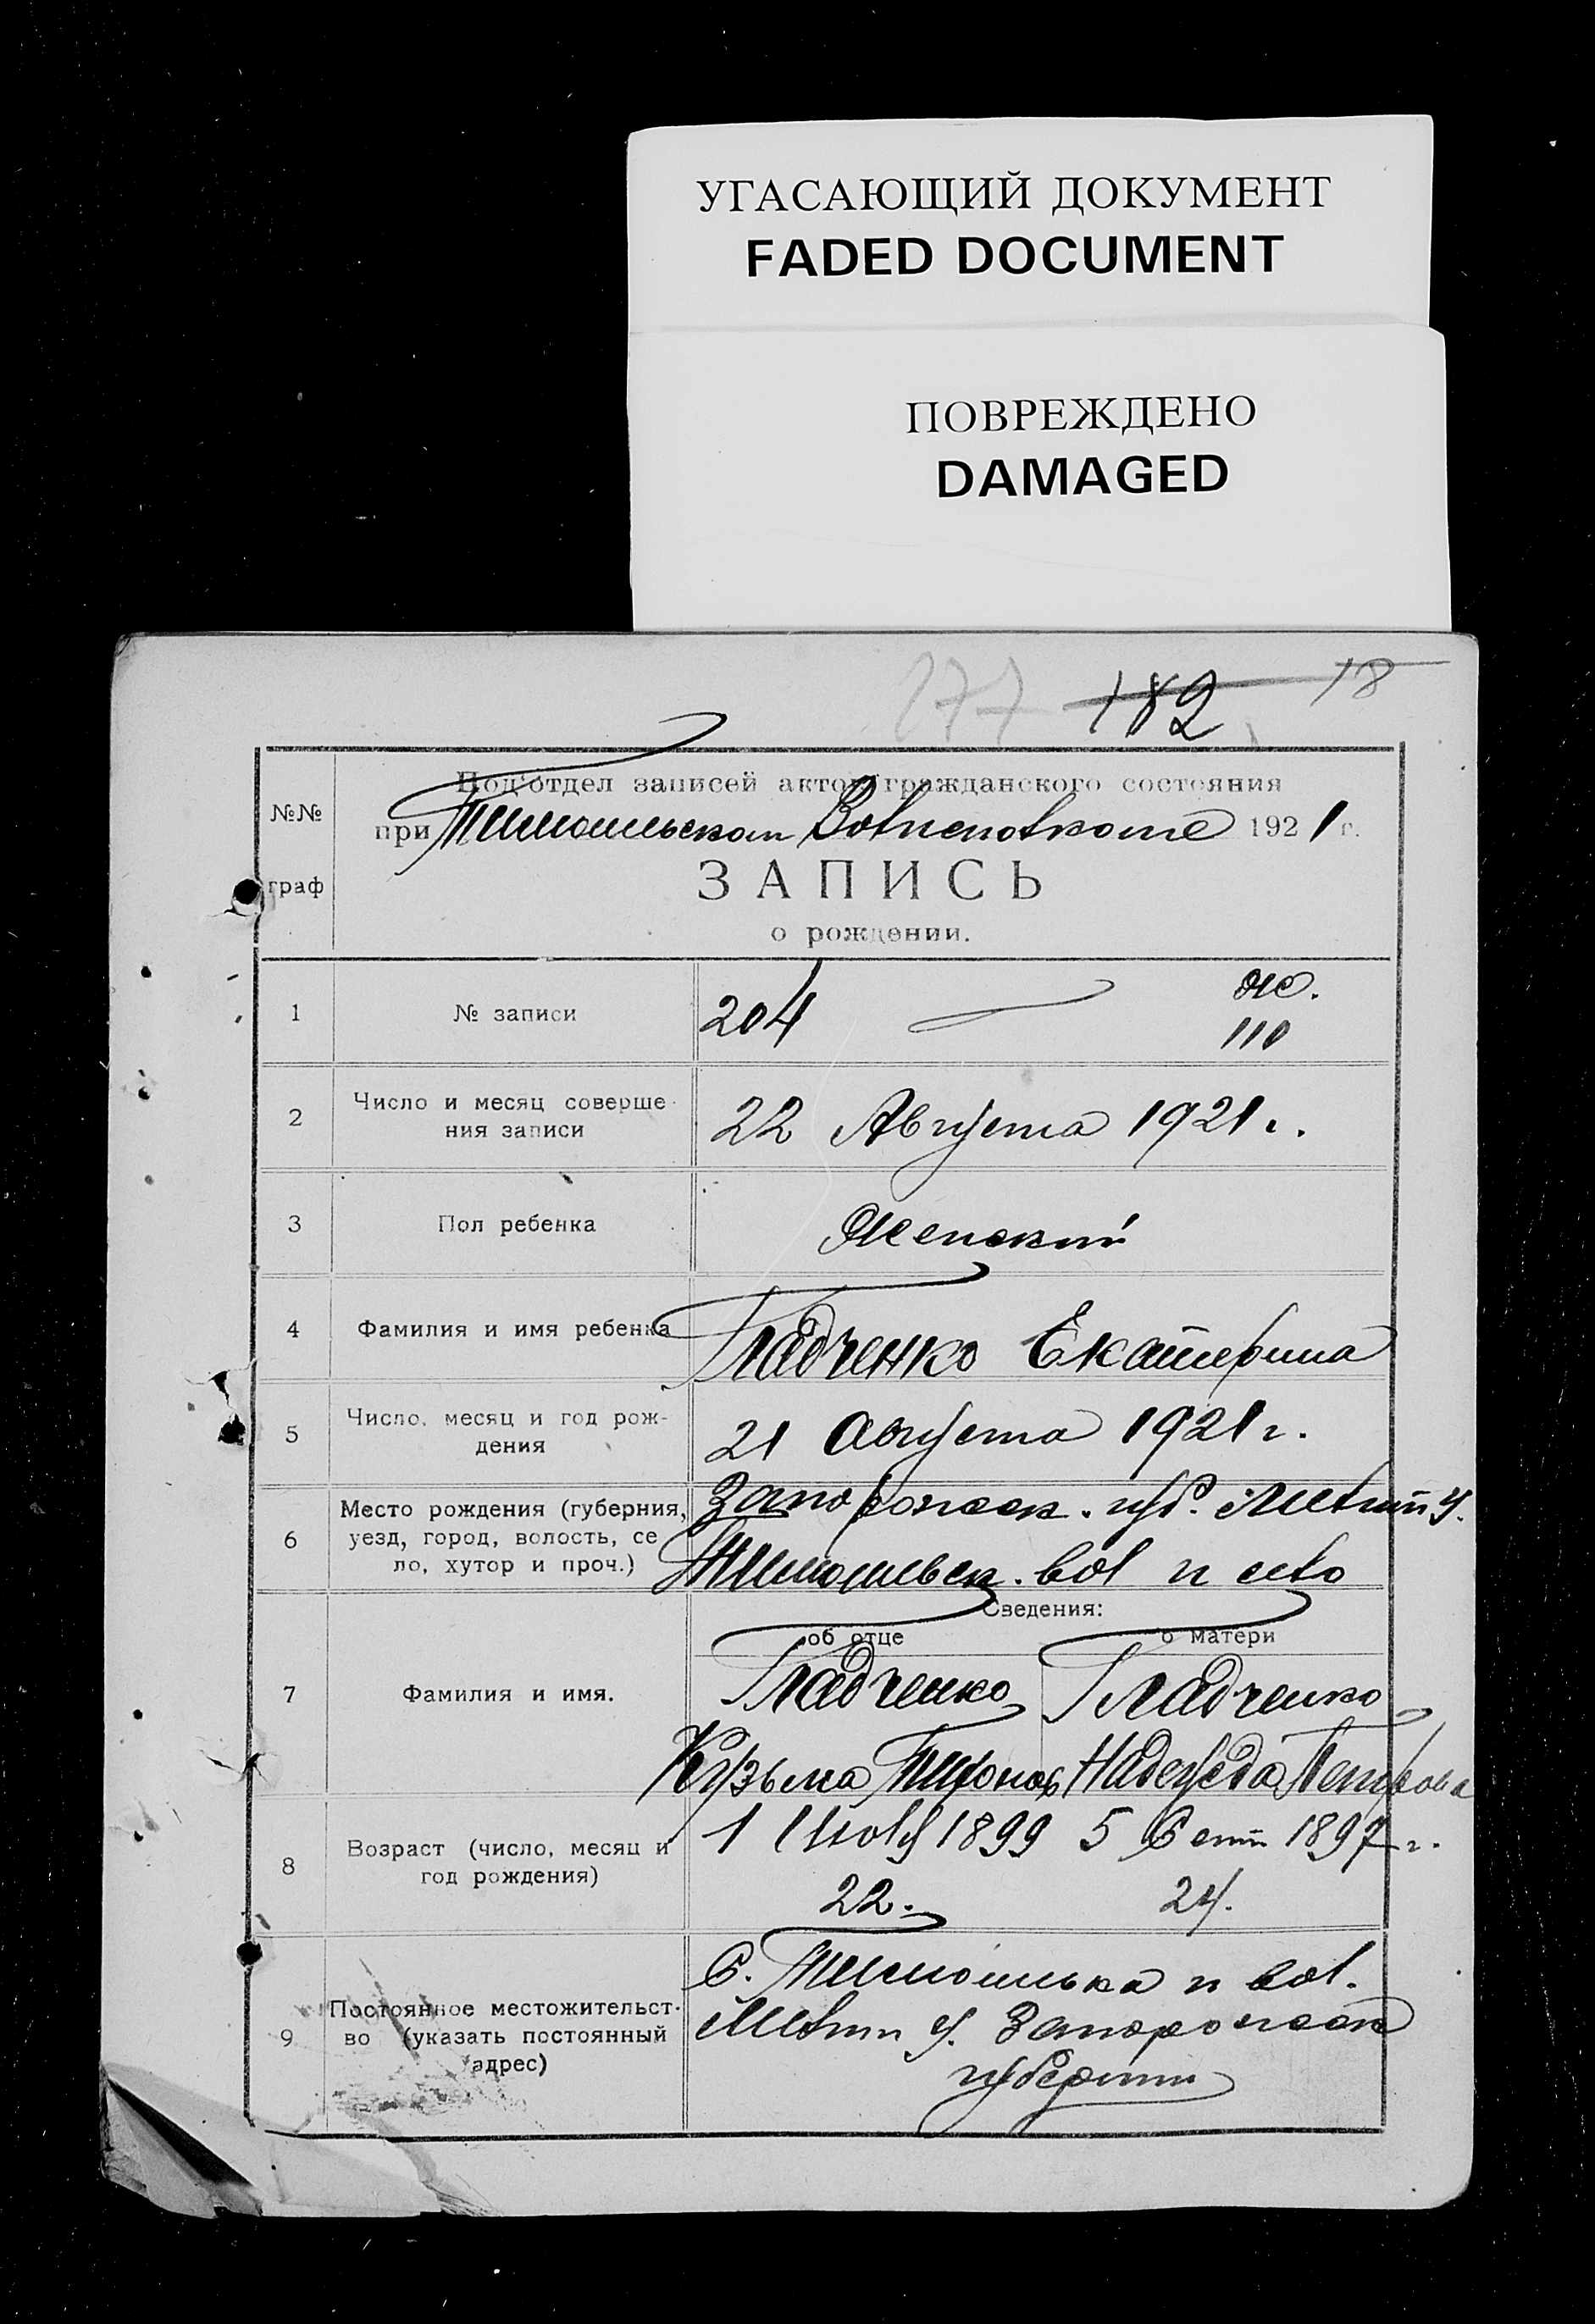 УГАСАЮЩИЙ ДОКУМЕНТ
FADED DOCUMENT
ПОВРЕЖДЕНО
DAMAGED
177 182 18
№№ граф
Под'отдел записей актов гражданского состояния
при Тимошевском Волисполкоме 1921 г.
ЗАПИСЬ
о рождении.
1 № записи 204 ж. 110
2 Число и месяц соверше
ния записи 22 Августа 1921 г.
3 Пол ребенка Женский
4 Фамилия и имя ребенка Гладченко Екатерина
5 Число, месяц и год рож-
дения 21 августа 1921 г.
6 Место рождения (губерния,
уезд, город, волость, се
ло, хутор и проч.)
Запорожск. губ. Мелит у.
вол и село
Сведения:
об отце о матери
7 Фамилия и имя. Гладченко Гладченко
Кузьма Надежда Петрова
8 Возраст (число, месяц и
год рождения)
1 Июля 1899 5 Сент 1897 г.
22. 24.
9 Постоянное местожительст-
во (указать постоянный
адрес)
С. и вол.
Мелит у. Запорожской
губернии